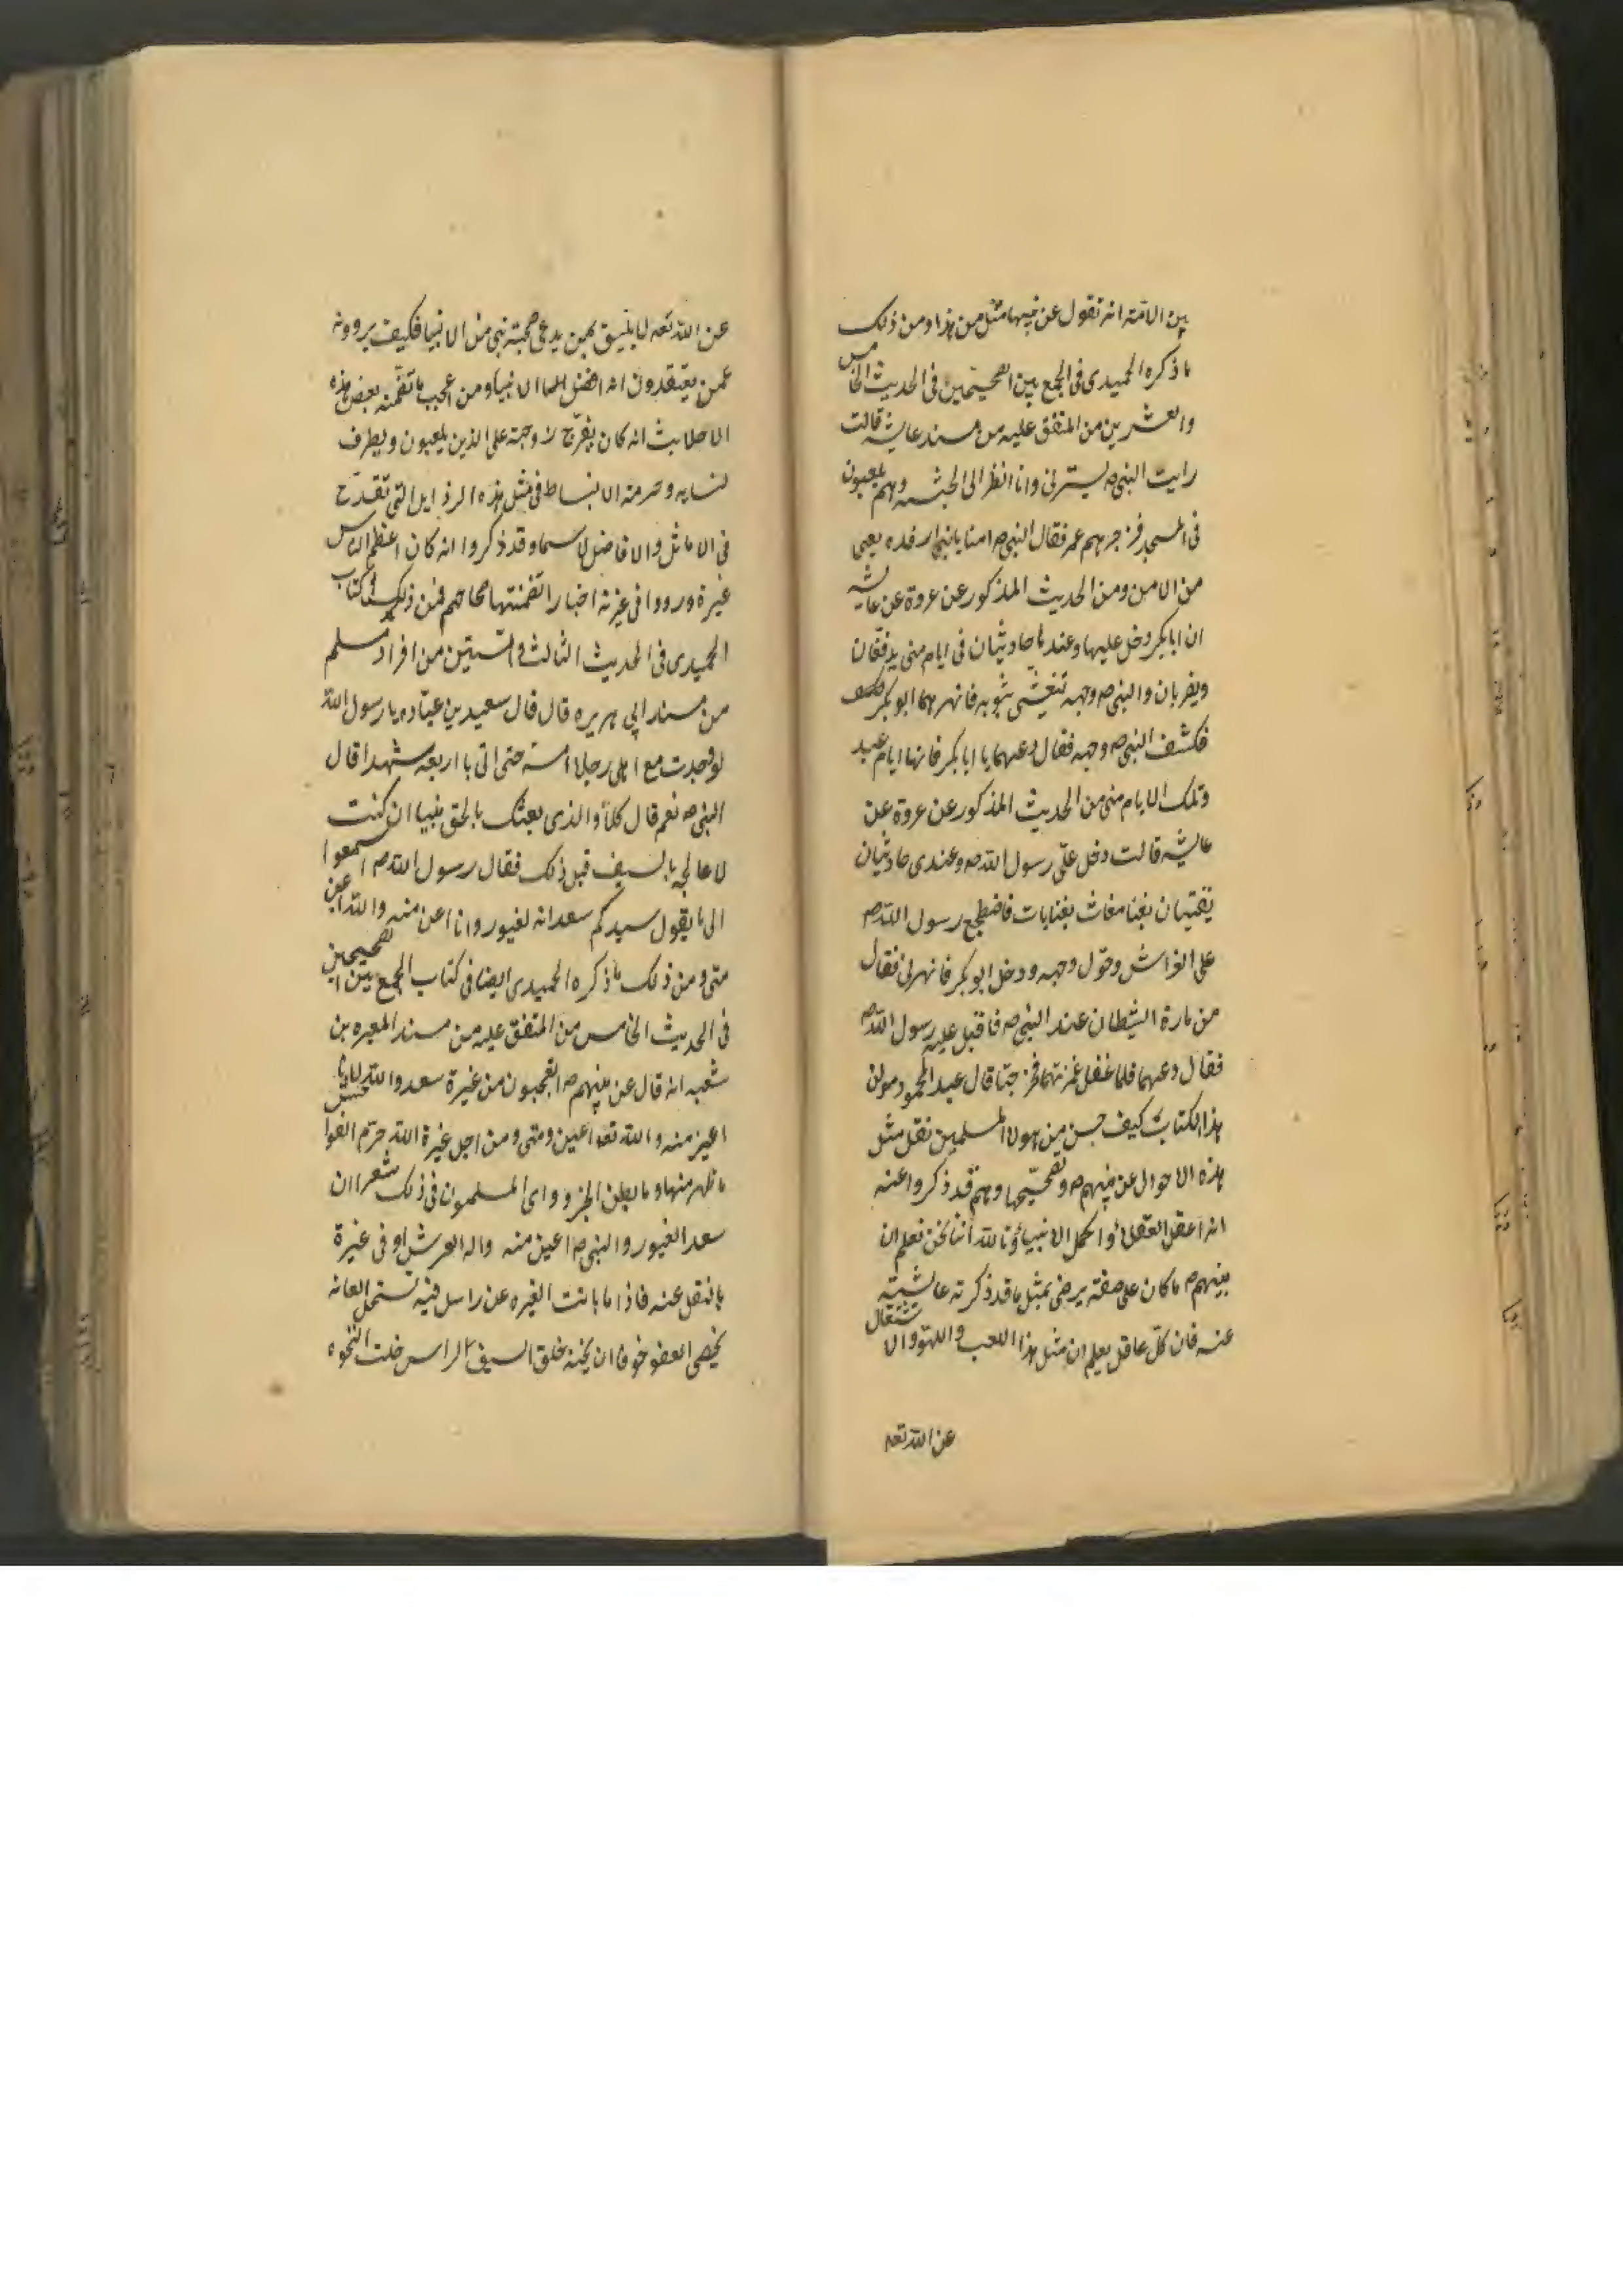 من الامة انه تقول عن نبيها مثل من هذا ومن ذلك
ما ذكره الحميدى فى الجمع بين الصحيحين فى الحديث الخامس
والعشرين من المتفق عليه من مسند عايشه قالت
رايت النبى ص يسترنى وانا انظر الى الحبشه وهم يلعبون
فى المسجد فزجرهم عمر فقال النبى ص امنا يا بنى ارفده يعنى
من الامن ومن الحديث المذكور عن عروة عن عايشه
ان ابا بكر دخل عليها وعندها جاريتان فى ايام منى يدففان
ويضربان والنبى ص وجهه تنغشى بثوبه فانهرهما ابو بكر فكشف
فكشف النبى ص وجهه فقال دعهما يا ابا بكر فانها ايام عيد
وتلك الايام منى من الحديث المذكور عن عروة عن
عايشه قالت دخل علىّ رسول الله ص وعندى جاريتان
يغنيان بغنا مغاث بغنايات فاضطجع رسول الله ص
على الفراش وحوّل وجهه ودخل ابو بكر فانهرنى فقال
من مارة الشيطان عند النبى ص فاقبل عليه رسول الله ص
فقال دعهما فلما غفل غمزتهما فخرجتا قال عبد المحمود مولف
هذا الكتاب كيف حسن من هولا المسلمين نقل مثل
هذه الاحوال عن نبيهم ص وتصحيحها وهم قد ذكروا عنه
انه اعقل العقلاء واكمل الانبياء وتالله اننا نحن نعلم ان
نبيهم ص ما كان على صفة يرضى بمثل ما قد ذكرته عايشة
عنه فان كلّ عاقل يعلم ان مثل هذا اللعب واللهو والاشتغال
عن الله تعه
عن الله تعه لا يليق بمن يدعى صحبة نبى من الانبيا فكيف يروونه
عمن يعتقدون انه افضل الانبيا ومن عجيب ما تضمنه بعض هذه
الاحاديث انه كان يفرّج زوجته على الذين يلعبون ويطرف
لنسايه وحرمته الانبساط فى مثل هذه الرذايل التى تقدح
فى الاماثل والافاضل لا سيما وقد ذكروا انه كان اعظم الناس
غيرة ورووا فى غيرته اخبارا تضمنتها صحاحهم فمن ذلك فى كتاب
الحميدى فى الحديث الثالث والستين من افراد مسلم
من مسند ابى هريره قال قال سعيد بن عباده يا رسول الله
لو وجدت مع اهلى رجلا امسه حتى اتى باربعه شهدا قال
النبى ص نعم قال كلا والذى بعثك بالحق نبيا ان كنت
لاعالجه بالسيف قبل ذلك فقال رسول الله ص اسمعوا
الى ما يقول سيدكم سعد انه لغيور وانا اعن منه والله اعن
منى ومن ذلك ما ذكره الحميدى ايضا فى كتاب الجمع بين الصحيحين
فى الحديث الخامس من المتفق عليه من مسند المغيره بن
شعبه انه قال عن نبيهم ص اتعجبون من غيرة سعد والله لانا
اغير منه والله تعه اعين ومنى ومن اجل غيرة الله حرّم الفواحش
ما ظهر منها وما بطن الخبر وراى المسلمون فى ذلك شعرا ان
سعد الغيور والنبى ص اعين منه واله العرش اوفى غيرة
ما نقل عنه فاذا ما بانت الغيره عن راسل فيه تستحمل العانه
يخصى العضو خوفا ان يخنه يحلق السيف الراس خلت النخوه